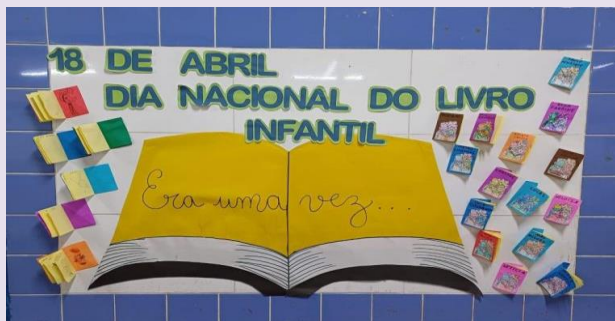 18 DE ABRIL
DIA NACIONAL DO LIVRO
INFANTIL
Era uma vez...